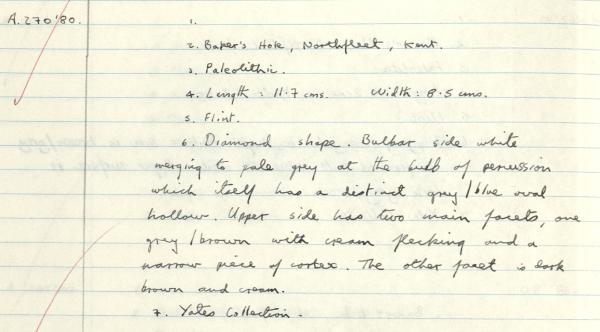 A.270'80. 1.
2. Baker's Hole, Northfleet, Kent.
3. Paleolithic.
4. Length : 11.7 cms. Width : 8.5 cms.
5. Flint.
6. Diamond shape. Bulbar side white
merging to pale grey at the bulb of percussion
which itself has a distinct grey/blue oval
hollow. Upper side has two main facets, one
grey/brown with cream flecking and a
narrow piece of cortex. The other facet is dark
brown and cream.
7. Yates Collection.